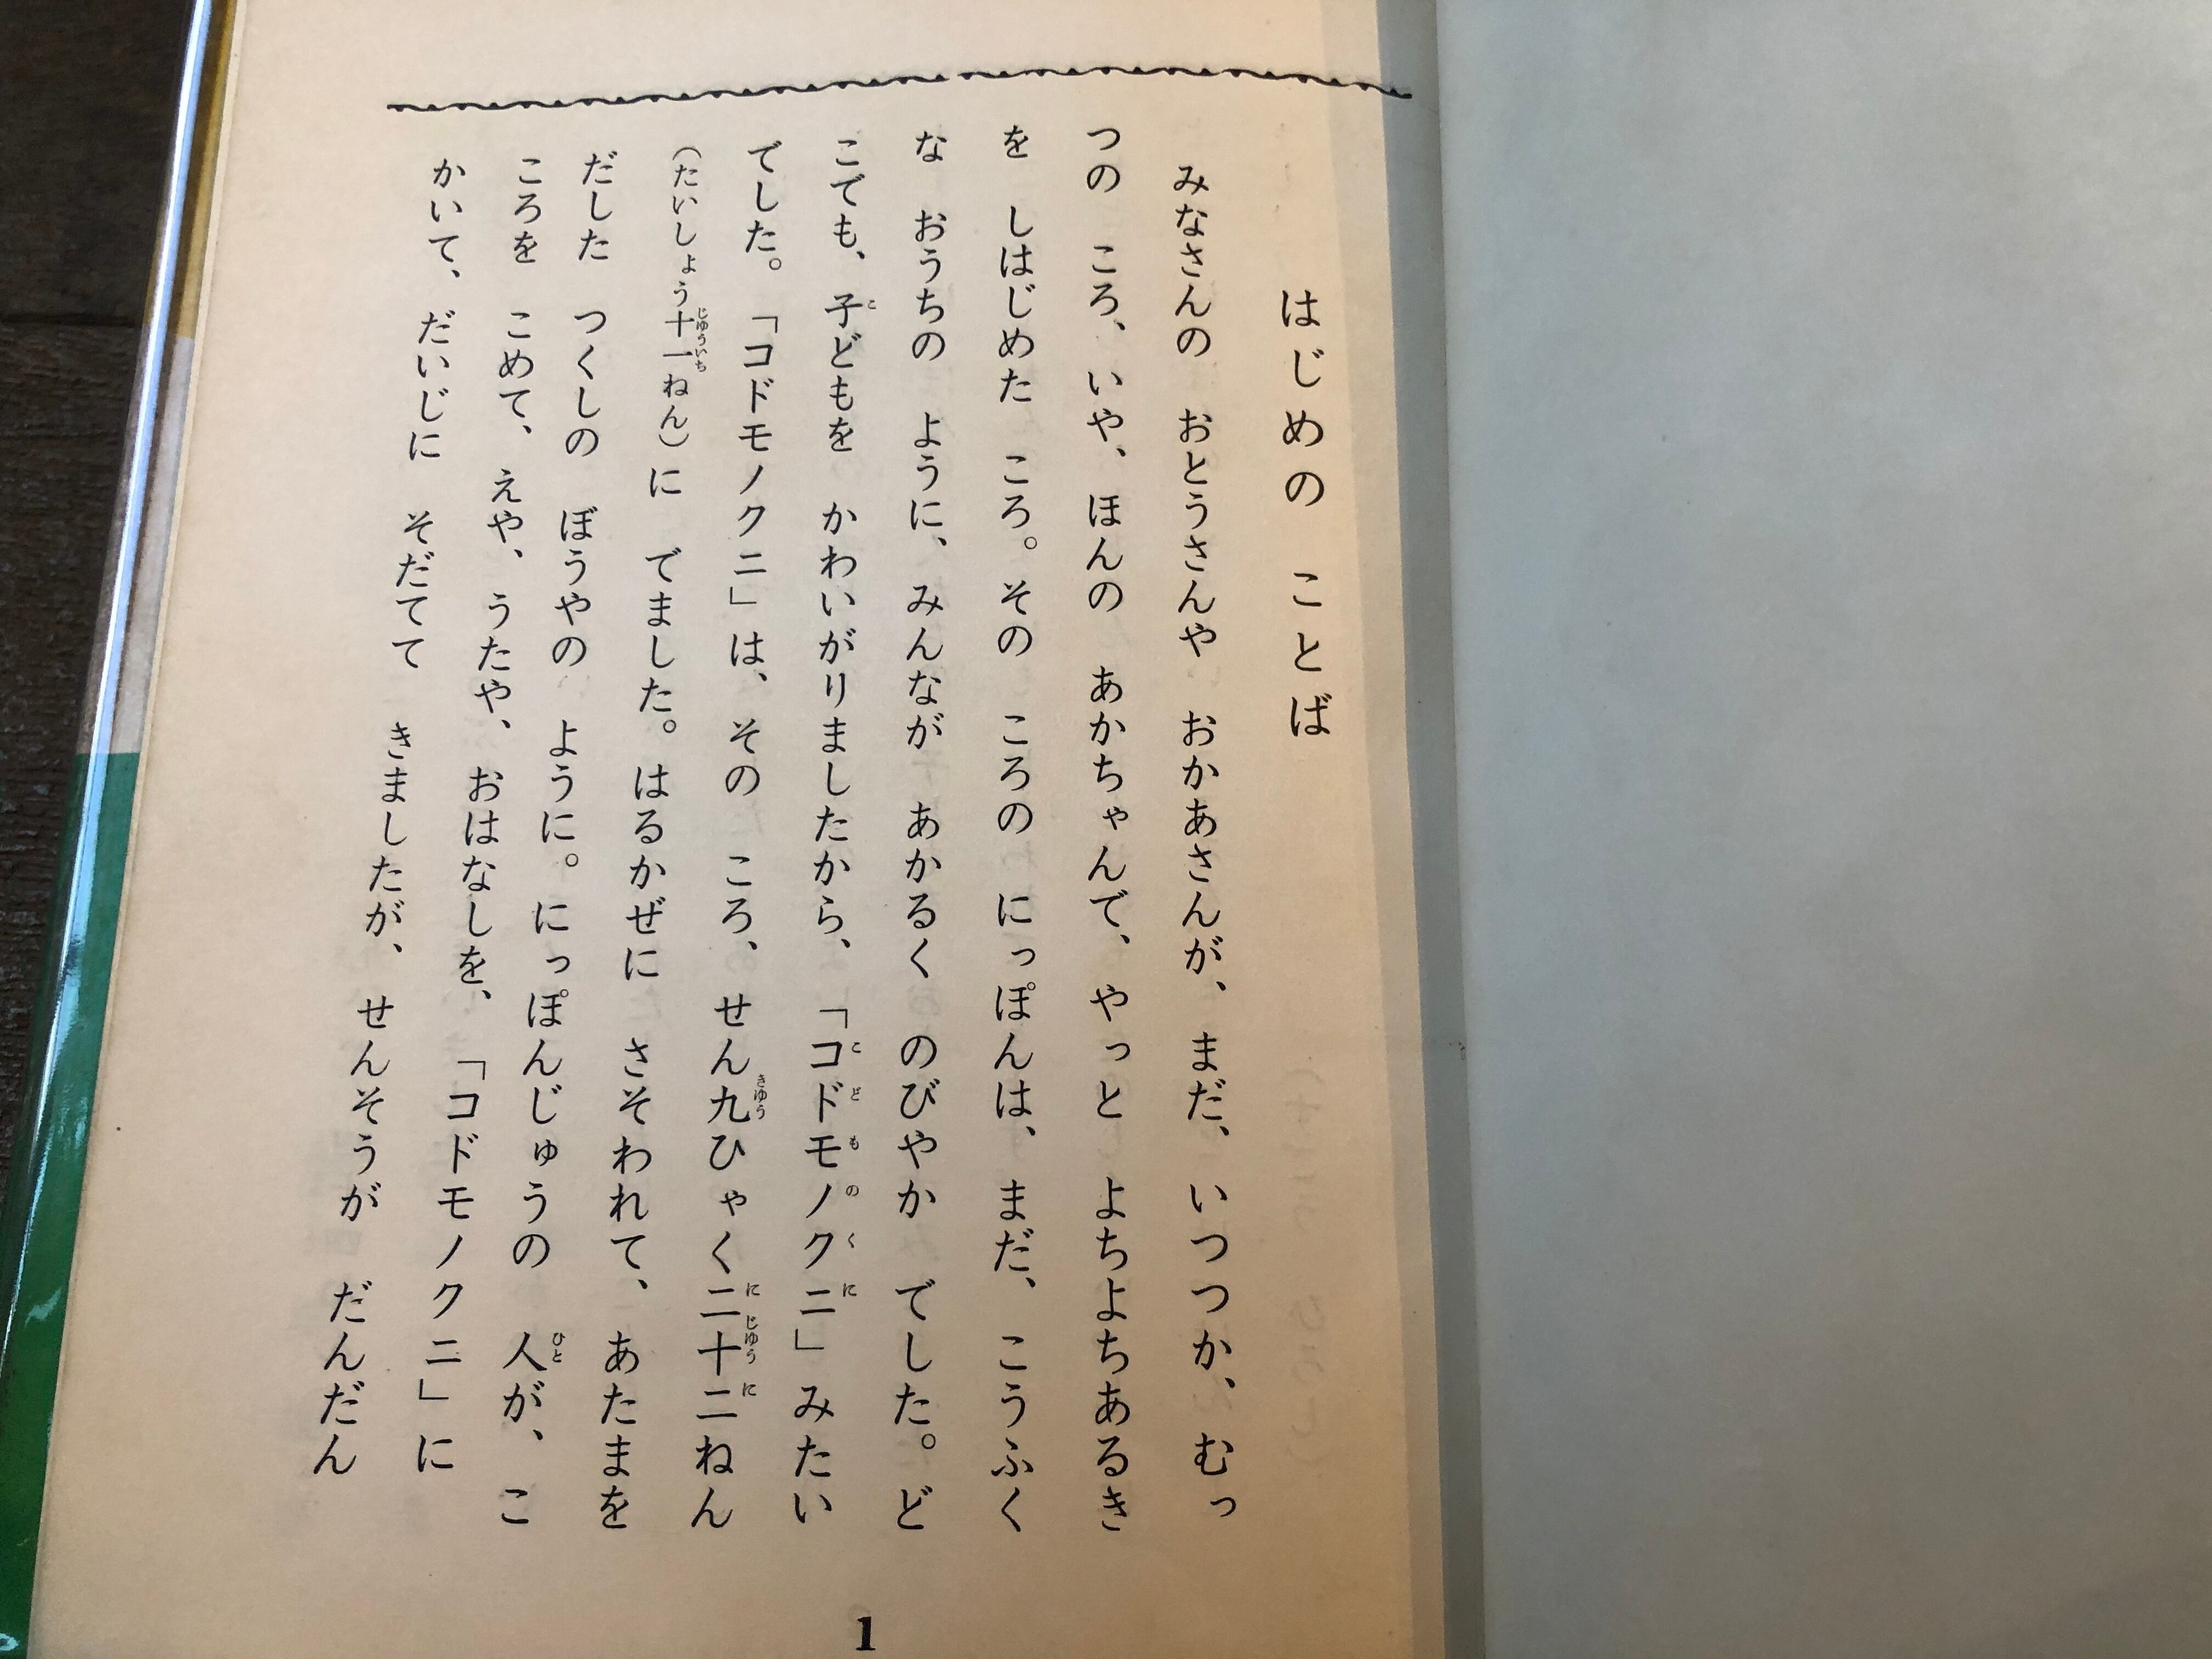 はじめの ことば
みなさんの おとうさんや おかあさんが、まだ、いつつか、むっ
つの ころ、いや、ほんの あかちゃんで、やっと よちよちあるき
を しはじめた ころ。その ころの にっぽんは、まだ、こうふく
な おうちの ように、みんなが あかるく のびやか でした。ど
こでも、子どもを かわいがりましたから、「コドモノクニ」みたい
でした。「コドモノクニ」は、その ころ、せん九ひゃく二十二ねん
(たいしょう十一ねん)に でました。はるかぜに さそわれて、あたまを
だした つくしの ぼうやの ように。にっぽんじゅうの 人が、こ
ころを こめて、えや、うたや、おはなしを、「コドモノクニ」に
かいて、だいじに そだてて きましたが、せんそうが だんだん
1